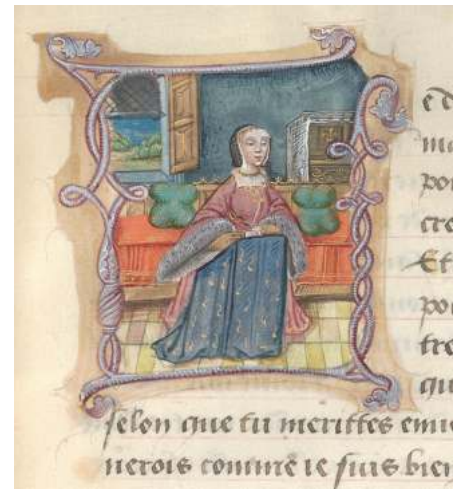 e
ma
po
cre
Et
po
tre
qu
selon que tu merittes
nerois comme ie suis bien